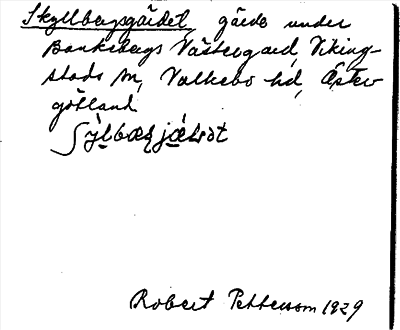 Skyllbergsgärdet, gärde under
Banksbergs Västergard, Viking-
stads sn, Valkebo hd, Öster-
götland
Robert Pettersson 1929